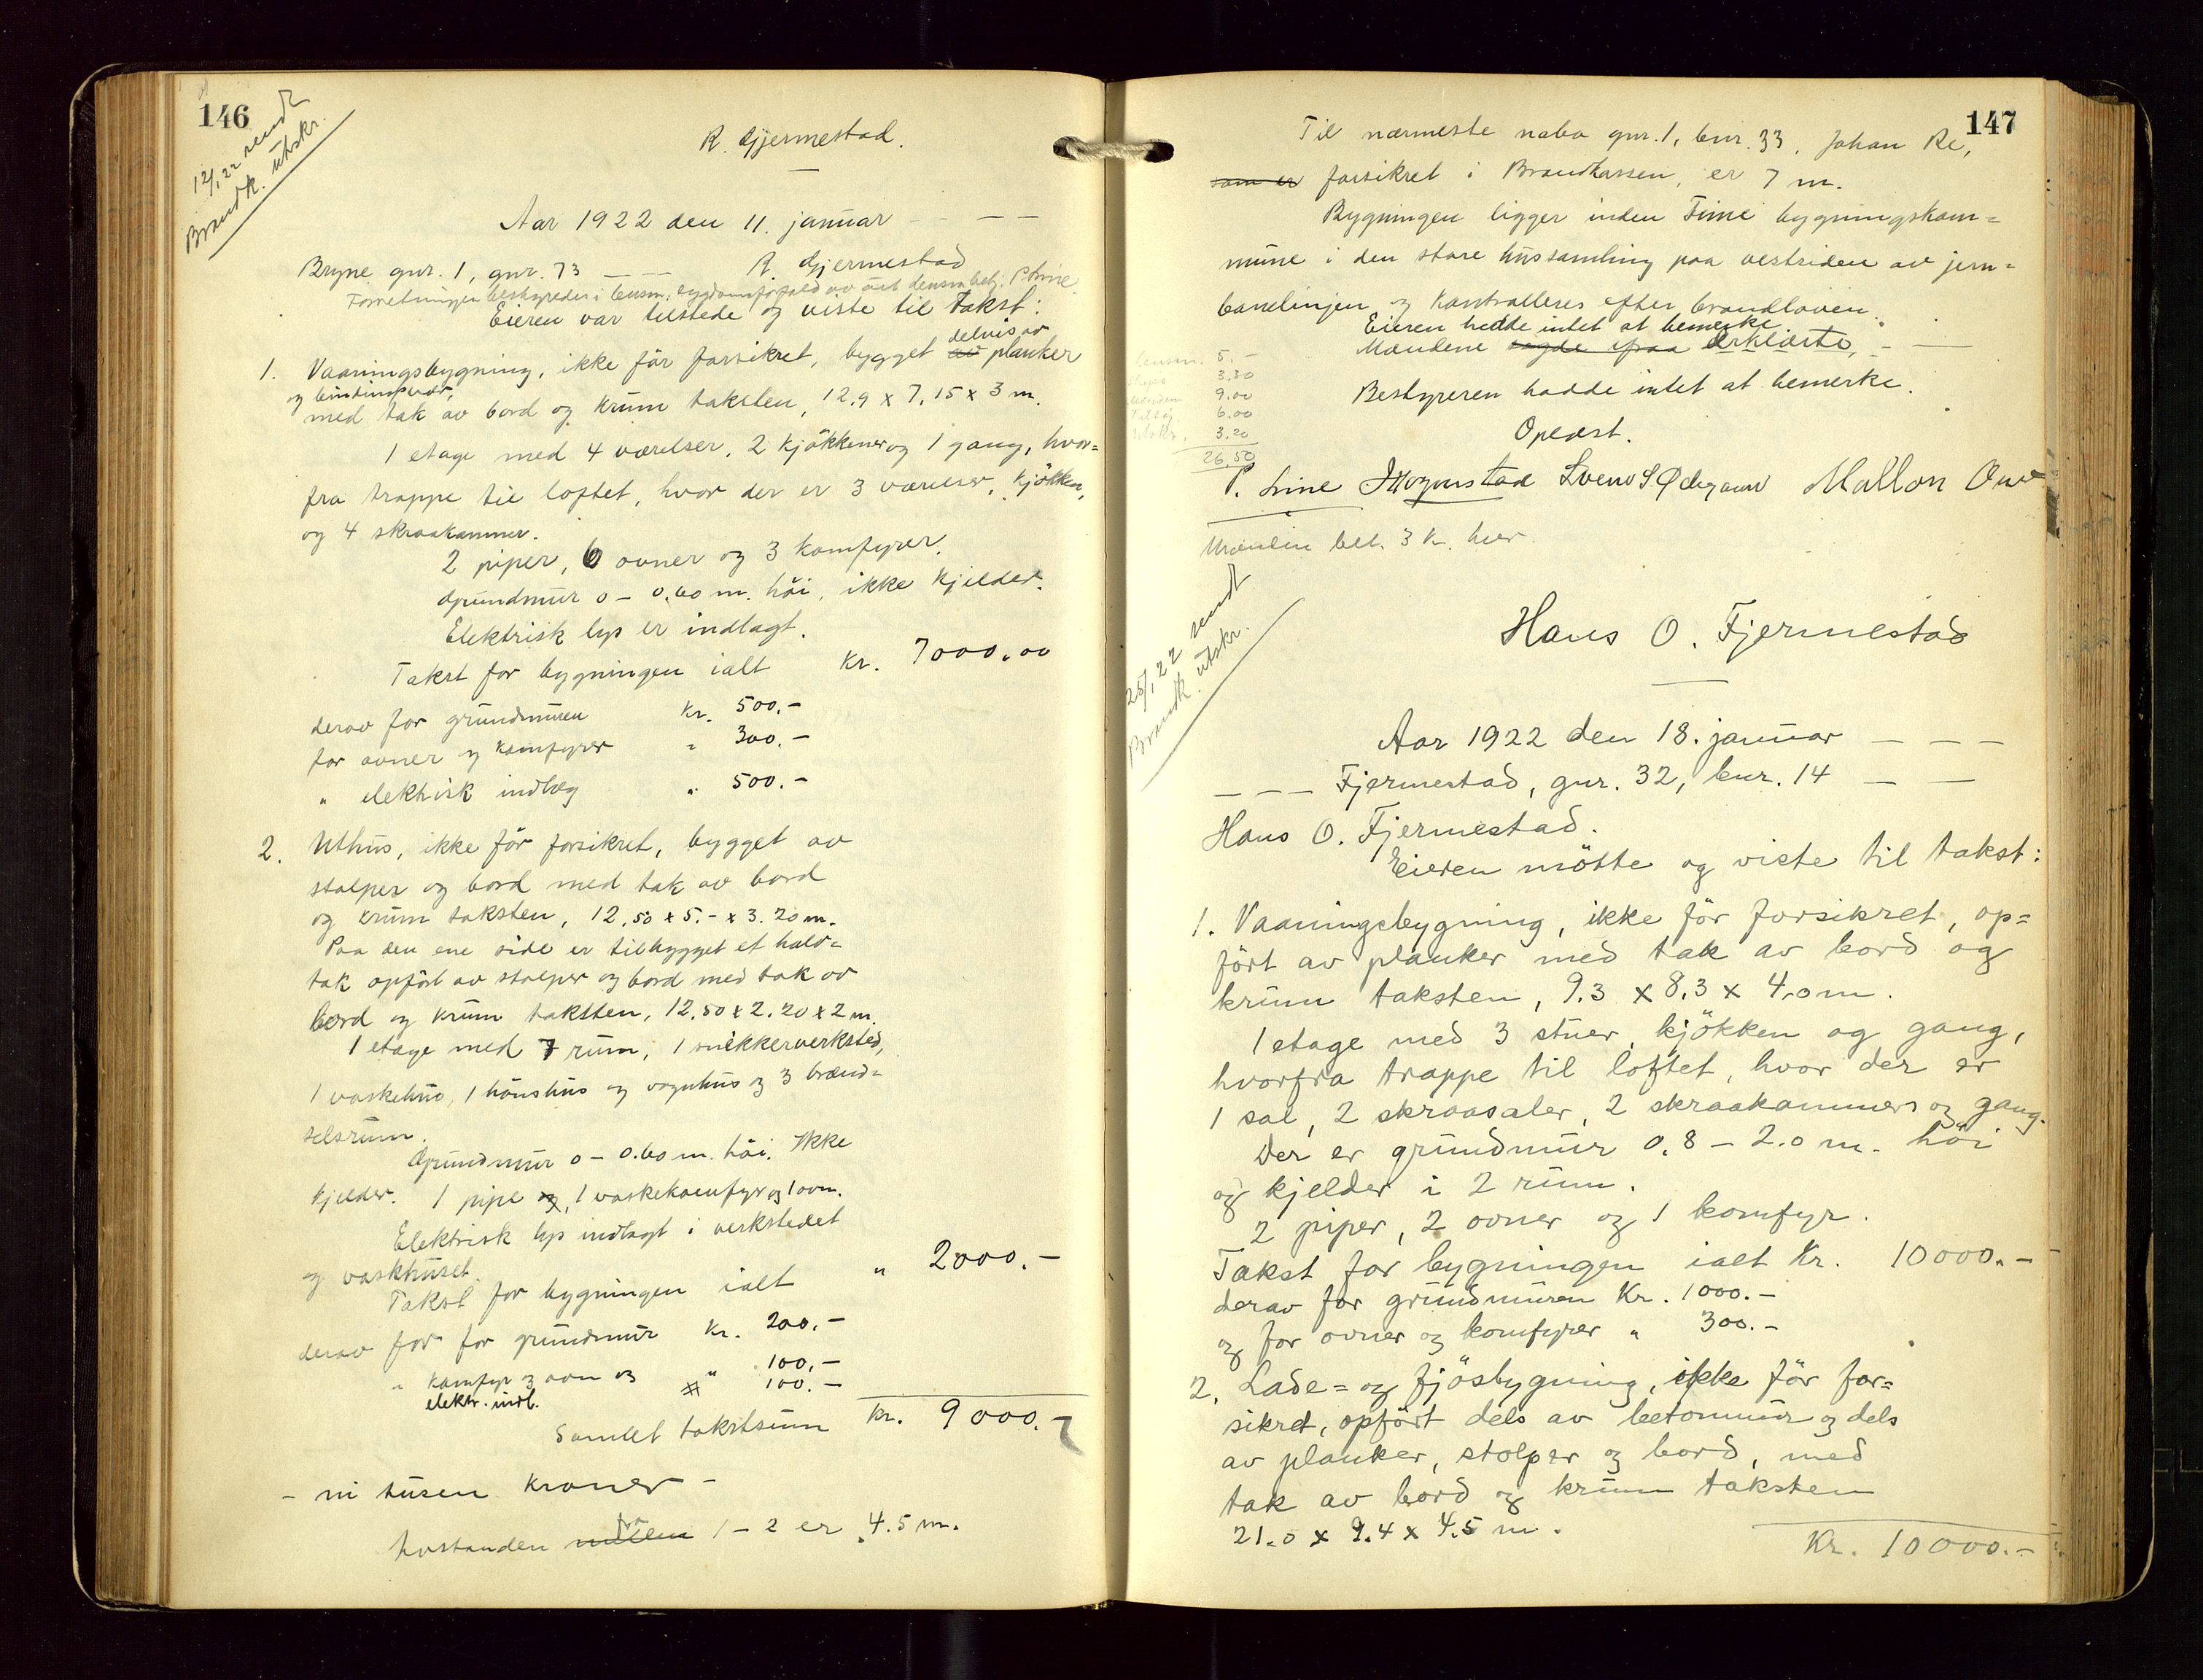 146
12/1 22 sendt
Brandk. utskr.
R. Gjermestad.
Aar 1922 den 11. januar - - - -
Bryne gnr. 1, gnr. 73 - - - R. Gjermestad
Forretningen bestyredes i lensm. sygdomsforfald av P. Line.
Eieren var tilstede og viste til takst:
1. Vaaningsbygning, ikke för forsikret, bygget av delvis av planker
og bindingsverk,
med tak av bord og krum taksten, 12.9 x 7.15 x 3 m.
1 etage med 4 værelser, 2 kjökkener og 1 gang, hvor=
fra trappe til loftet, hvor der er 3 værelser, kjökken,
og 4 skraakammer.
2 piper, 6 ovner og 3 komfyrer.
Grundmur 0 - 0.60 m. höi, ikke kjelder.
Elektrisk lys er indlagt.
Takst for bygningen ialt Kr. 7000.00
derav for grundmuren Kr. 500.-
for ovner og komfyrer " 300.-
" elektrisk indlæg " 500.-
2. Uthus, ikke för forsikret, bygget av
stolper og bord med tak av bord
og krum taksten, 12.50 x 5.- x 3.20 m.
Paa den ene side er tilbygget et halv=
tak opfört av stolper og bord med tak av
bord og krum taksten, 12.50 x 2.20 x 2 m.
1 etage med 7 rum, 1 snekkerverksted,
1 vaskehus, 1 hönshus og vognhus og 3 brænd=
selsrum.
Grundmur 0 - 0.60 m. höi. Ikke
kjelder. 1 pipe og, 1 vaskekomfyr og 1 ovn.
Elektrisk lys indlagt i verkstedet
og vaskhuset.
Takst for bygningen ialt " 2000.-
derav for for grundmur Kr. 200.-
" komfyr og ovn og " 100.-
elektr. indl. " 100.-
Samlet takstsum Kr. 9000.-
- ni tusen kroner -
Avstanden mellem fra 1 - 2 er 4.5 m.
147
Til nærmeste nabo gnr. 1, bnr. 33, Johan Re,
som er forsikret i Brandkassen, er 7 m.
Bygningen ligger inden Time bygningskom=
mune i den store hussamling paa vestsiden av jern=
banelinjen og kontrolleres efter brandloven.
Eieren hadde intet at bemerke.
Mændene sagde ipaa erklærte, - -
Bestyreren hadde intet at bemerke.
Oplæst.
Lensm. 5.-
3.30
Mændene 9.00
6.00
Utskr. 3.20
26.50
P. Line Sven S Ødegaard
Mændene bet. 3 kr. hver
25/1 22 sendt
Brandk. utskr.
Hans O. Fjermestad
Aar 1922 den 18. januar - - -
- - - Fjermestad, gnr. 32, bnr. 14 - -
Hans O. Fjermestad.
Eieren mötte og viste til takst:
1. Vaaningsbygning, ikke för forsikret, op=
fört av planker med tak av bord og
krum taksten, 9.3 x 8.3 x 4.0 m.
1 etage med 3 stuer, kjökken og gang,
hvorfra trappe til loftet, hvor der er
1 sal, 2 skraasaler, 2 skraakammers og gang.
Der er grundmur 0.8 - 2.0 m. höi
og kjelder i 2 rum.
2 piper, 2 ovner og 1 komfyr.
Takst for bygningen ialt Kr. 10000.-
derav for grundmuren Kr. 1000.-
og for ovner og komfyrer " 300.-
2. Lade= og fjösbygning, ikke för for=
sikret, opfört dels av betonmur og dels
av planker, stolper og bord, med
tak av bord og krum taksten
21.0 x 9.4 x 4.5 m.
Kr. 10000.-